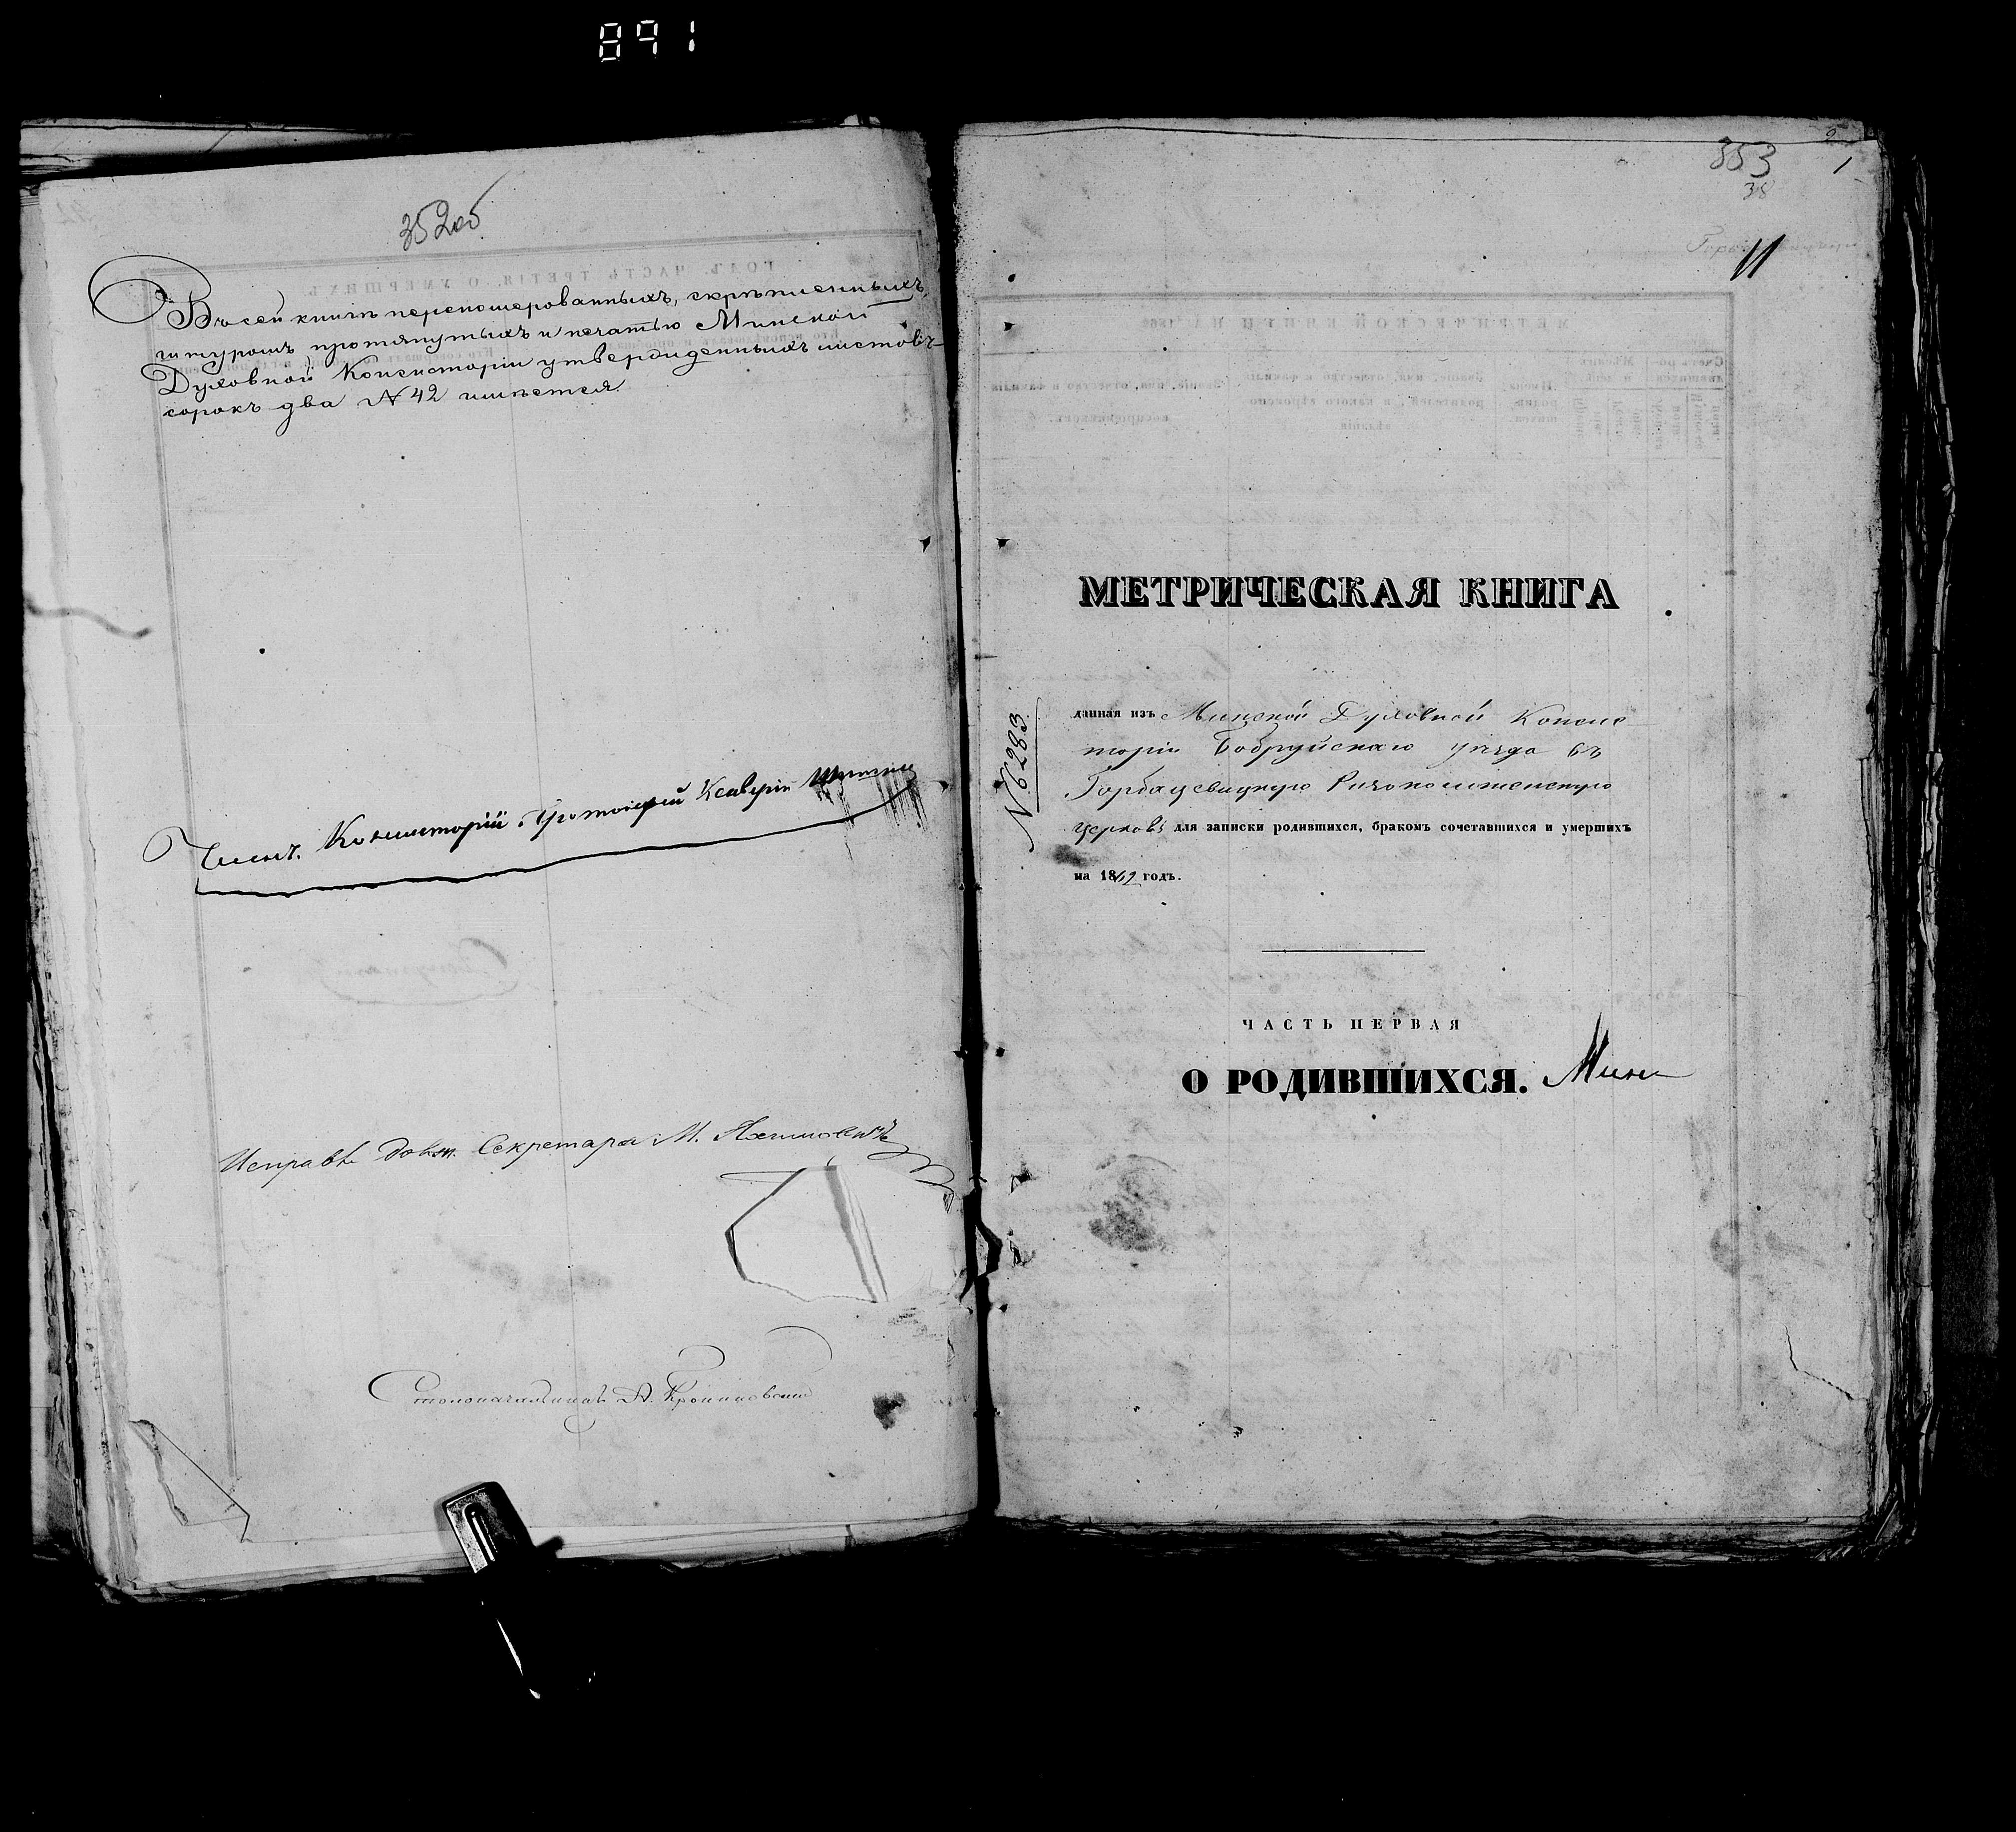 891
352об
Въ сей книгѣ переношерованныхъ, скрѣпленныхъ,
шнуромъ протянутыхъ и печатью Минской
Духовной Консисторіи утвержденныхъ листовъ
сорокъ два N 42 имѣется.
Членъ Консисторіи Протоіерей Ксаверій
Исправл. долж. Секретаря М.
Столоначальникъ А.
2
353
1
38
11
МЕТРИЧЕСКАЯ КНИГА
N 6283
данная изъ Минской Духовной Консис
торіи Бобруйскаго уѣзда въ
Горбацевицкую Ризоположенскую
церковь для записки родившихся, бракомъ сочетавшихся и умершихъ
на 1862 годъ.
ЧАСТЬ ПЕРВАЯ
О РОДИВШИХСЯ.